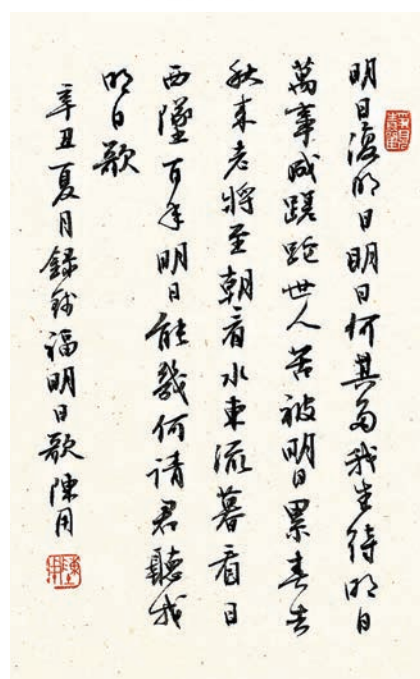 明日復明日明日何其多我生待明日
萬事成蹉跎世人苦被明日累春去
秋來老將至朝看水東流暮看日
西墜百年明日能幾何請君聽我
明日歌
辛丑夏月錄錢福明日歌陳用